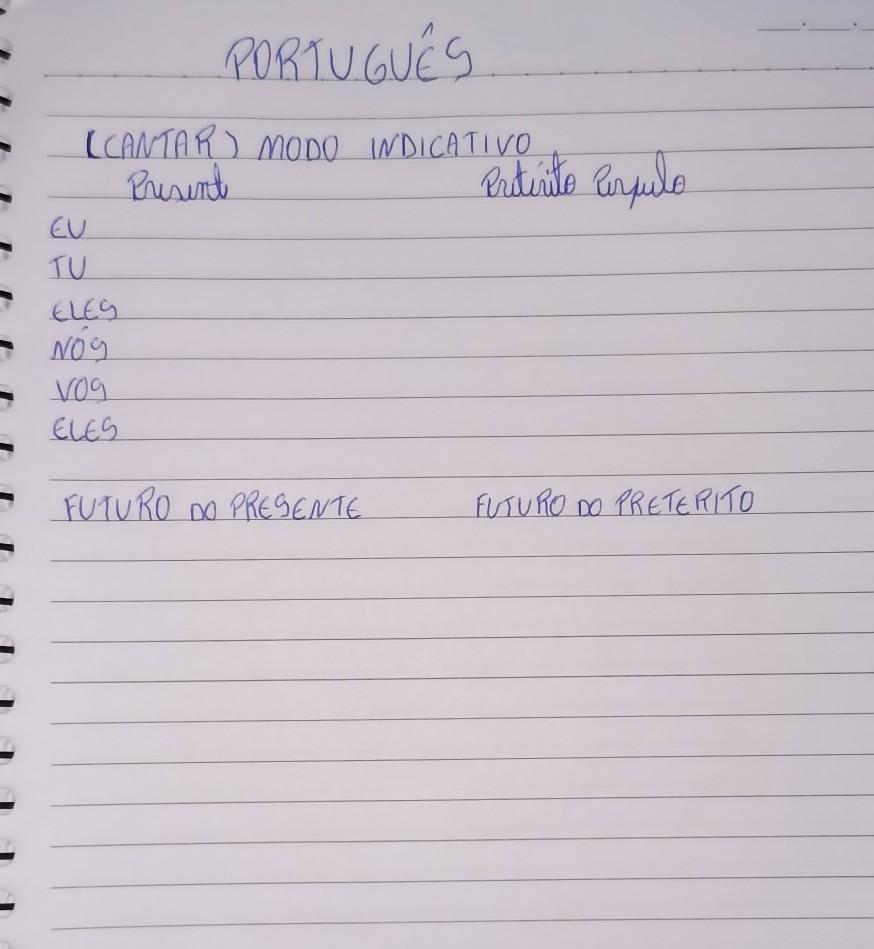 PORTUGUÊS
(CANTAR) MODO INDICATIVO
Present Pretérito Perfeito
EU
TU
ELES
NÓS
VOS
ELES
FUTURO DO PRESENTE FUTURO DO PRETERITO